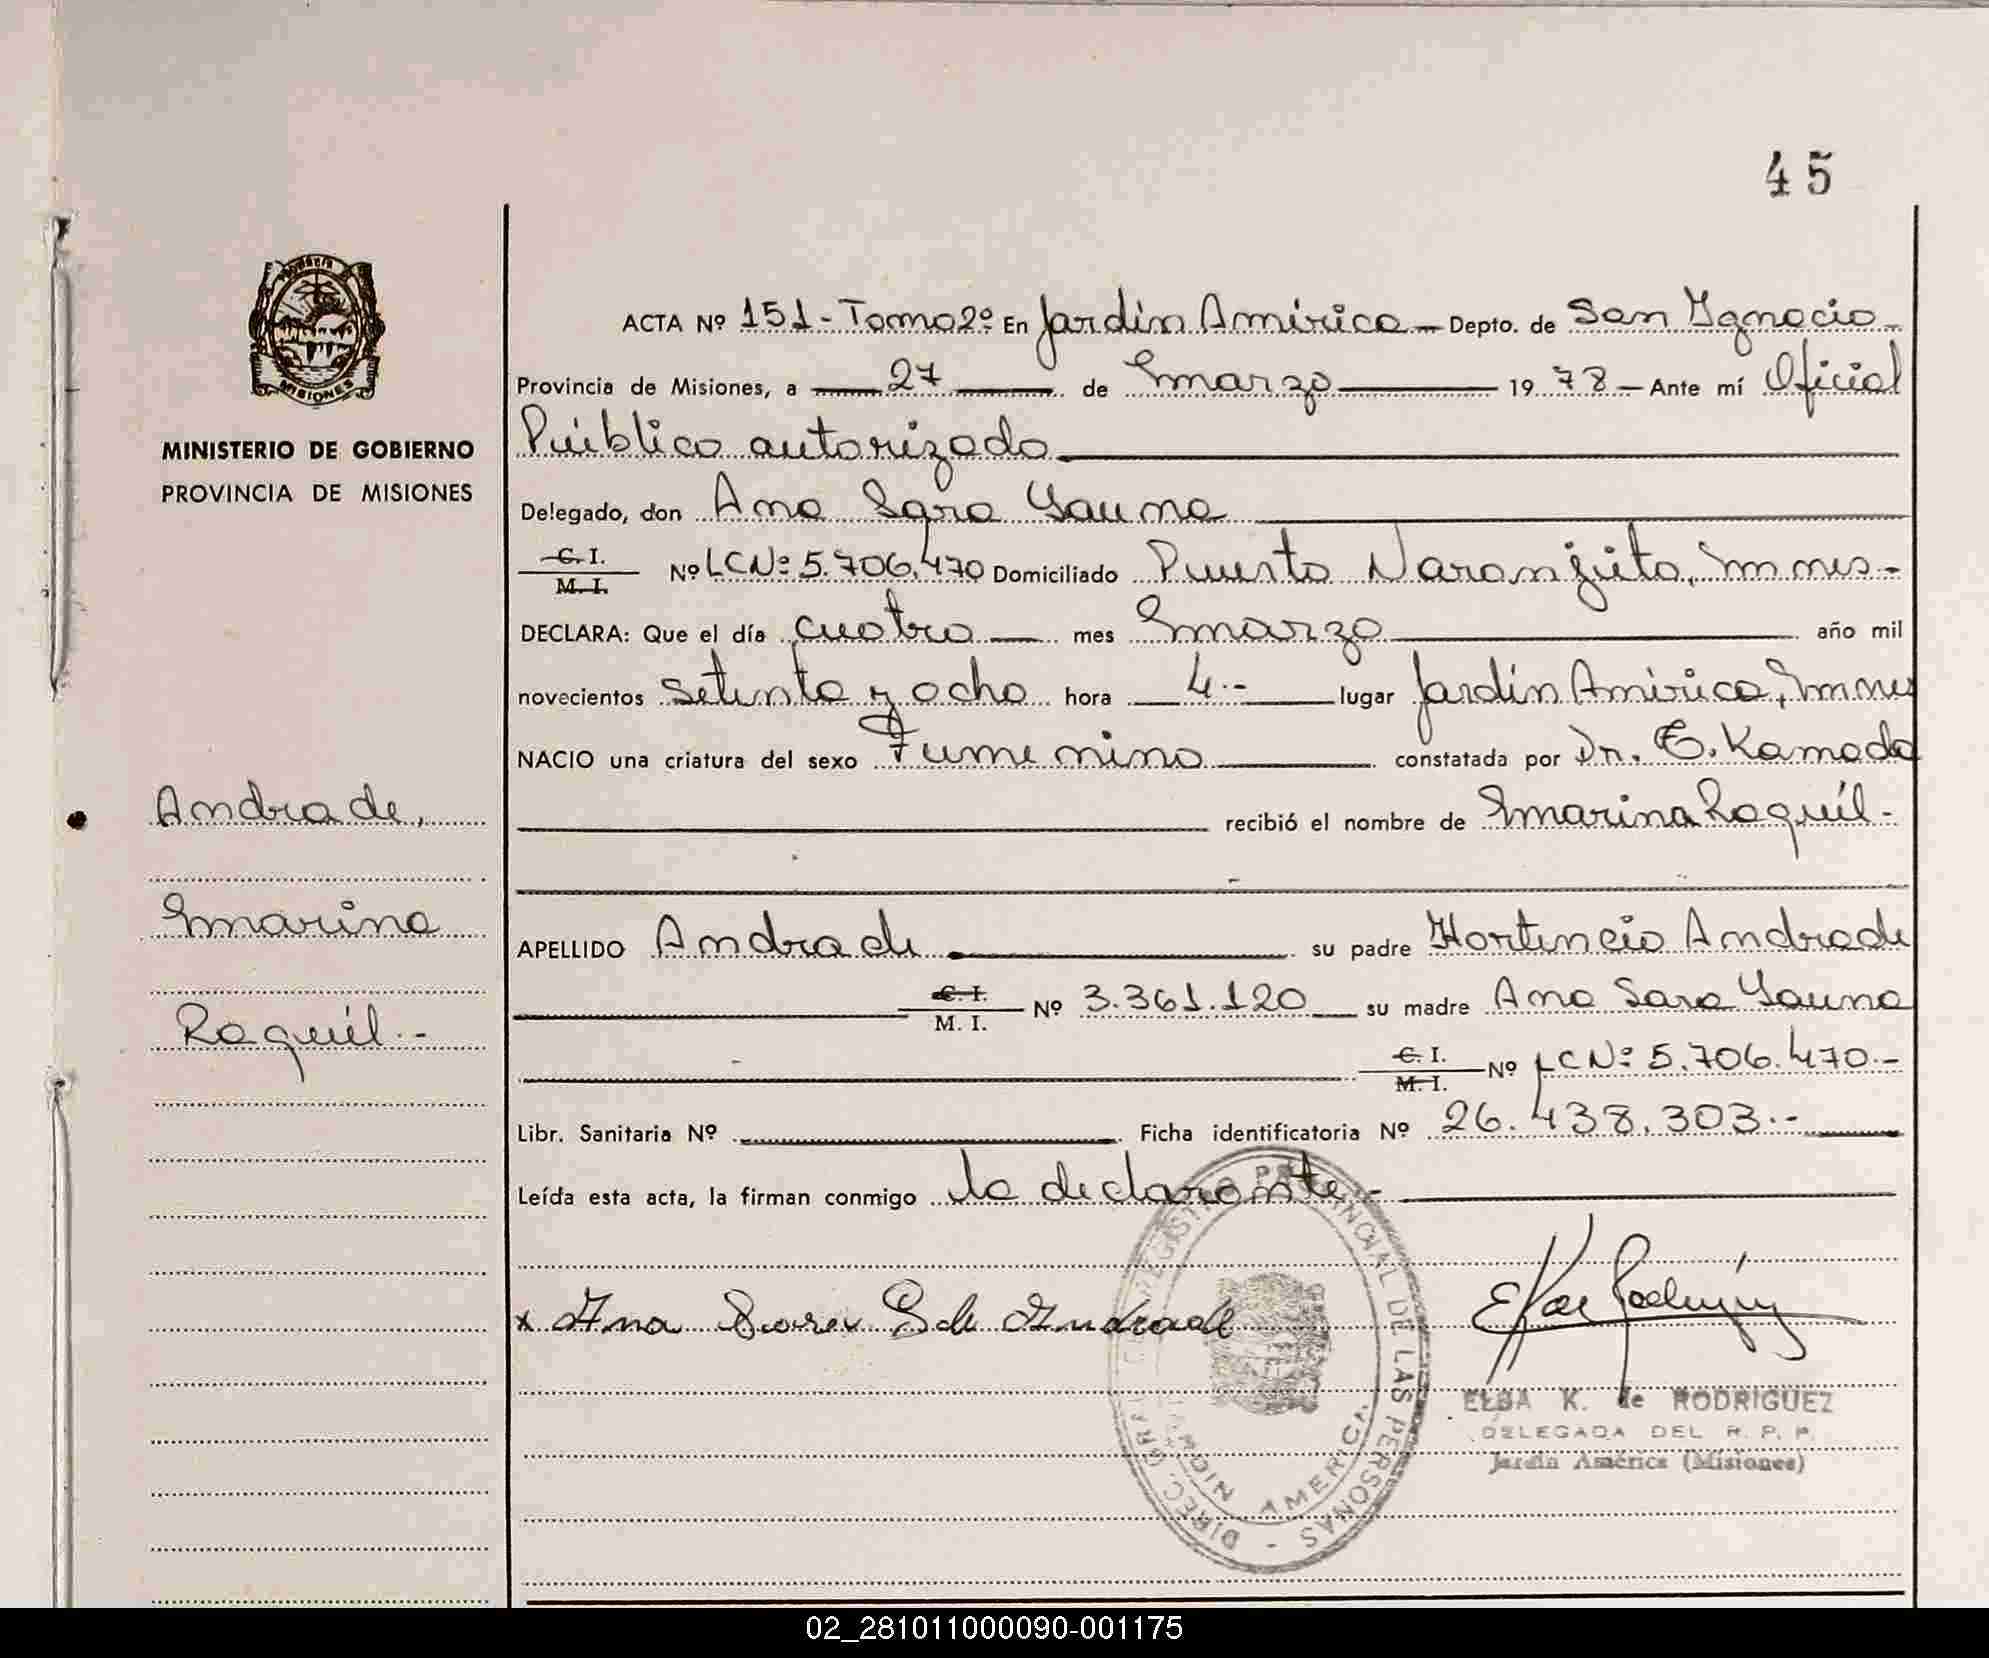 45
ACTA Nº 151 - Tomo 2º En Jardín América - Depto. de San Ignacio -
Provincia de Misiones, a 27 de Marzo 1978 - Ante mí Oficial
Público autorizado
MINISTERIO DE GOBIERNO
PROVINCIA DE MISIONES
Delegado, don Ana Sara Yauna
C. I.
M. I.
Nº LCNº 5.706.470 Domiciliado Puerto Naranjito, Mnes -
DECLARA: Que el día cuatro mes Marzo año mil
novecientos setenta y ocho hora 4.- lugar Jardín América, Mnes
NACIO una criatura del sexo Femenino constatada por Dr. E. Kamada
recibió el nombre de Marina Raquél -
Andrade,
Marina
Raquél.-
APELLIDO Andrade su padre Hortencio Andrade
C. I.
M. I.
Nº 3.361.120 su madre Ana Sara Yauna
C. I.
M. I.
Nº LCNº 5.706.470.-
Libr. Sanitaria Nº Ficha identificatoria Nº 26.438.303.-
Leída esta acta, la firman conmigo la declarante.-
x Ana Sara de Andrade
DIREC. GRAL. REGISTRO PROVINCIAL DE LAS PERSONAS -
JARDIN AMERICA
ELBA K. de RODRIGUEZ
DELEGADA DEL R. P. P.
Jardín América (Misiones)
PROVINCIA
MISIONES
02_281011000090-001175